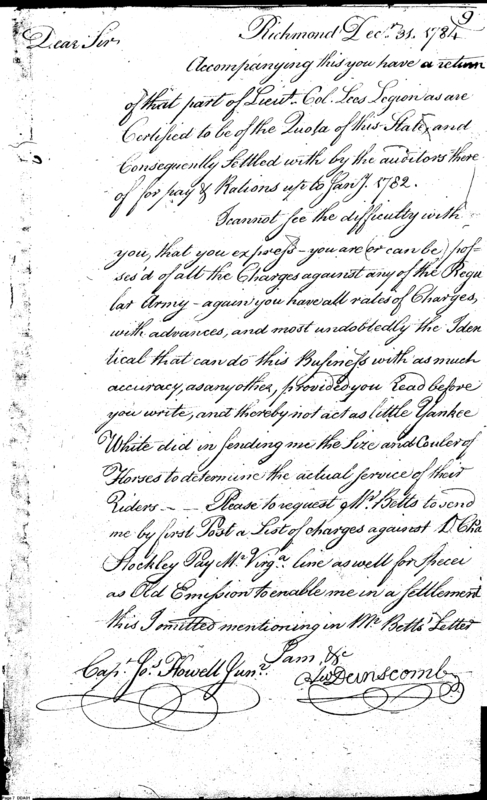 9
Richmond Decr. 31. 1784
Dear Sir
Accompanying this you have a return
of that part of Lieut. Col. Lees Legion as are
Certified to be of the Quota of this State, and
Consequently Settled with by the auditors there
of for pay & Rations up to Jany. 1782.
I cannot see the difficulty with
you, that you express - you are (or can be) pos-
ses'd of all the Charges against any of the Regu
lar Army - again you have all rates of Charges,
with advances, and most undobtedly the Iden
tical that can do this Business with as much
accuracy, as any other, provided you Read before
you write, and thereby not act as little Yankee
White did in sending me the Size and Couler of
Horses to determine the actual service of their
Riders - - - Please to request Mr. Betts to send
me by first Post a List of charges against
Stockley Pay Mr. Virga. line as well for Specei
as Old Emission to enable me in a Settlement
this I omitted mentioning in Mr. Betts' Letter
I am, &c
Capt. Jos. Howell Junr.
Dunscomb
Page 7